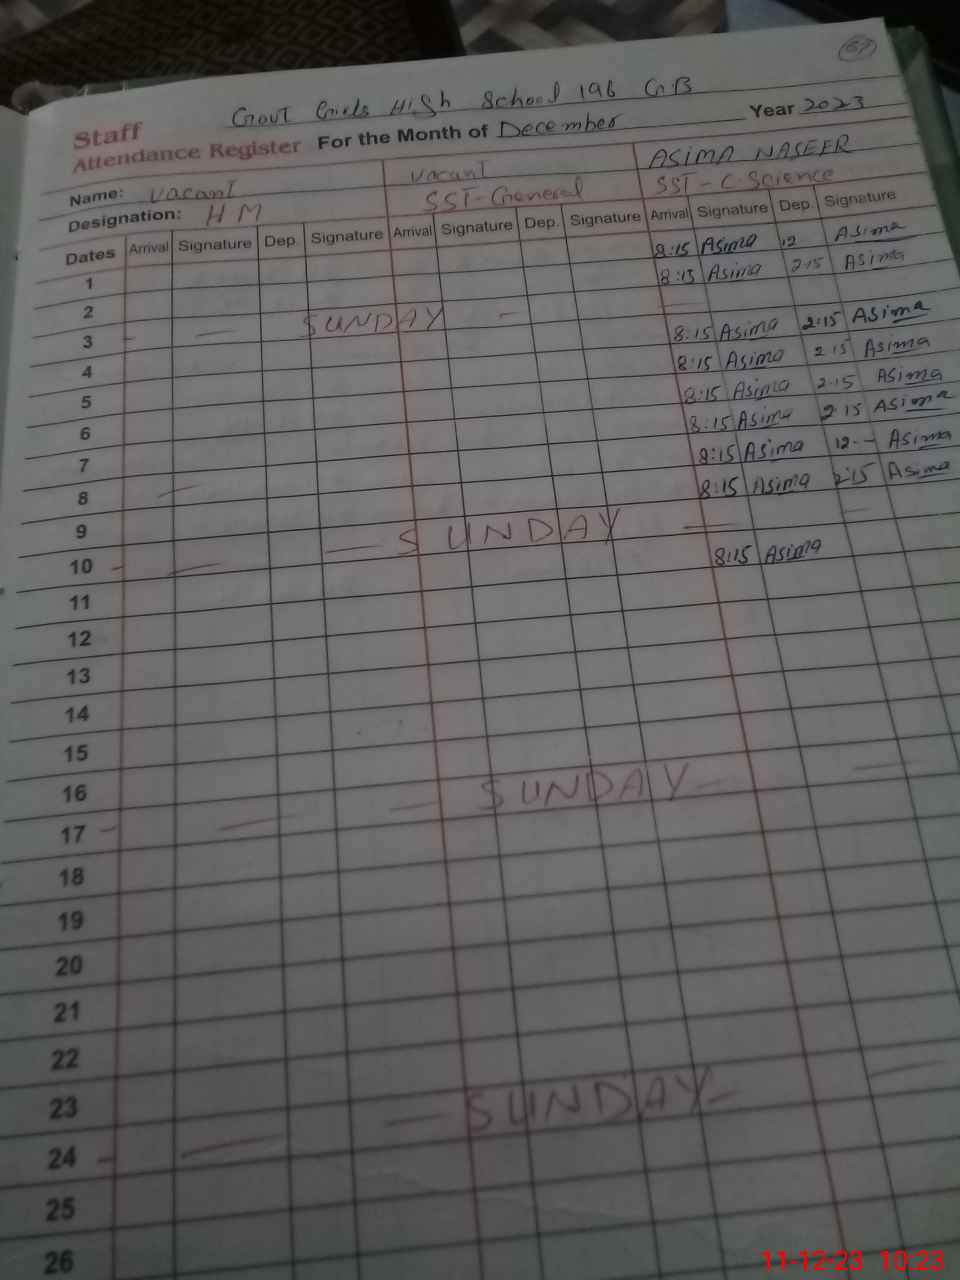 67
Govt Girls High School 196 G.B
Staff
Attendance Register For the Month of December Year 2023
Name: Vacant Vacant ASIMA NASEER
Designation: HM SST-General SST-C-Science
Dates Arrival Signature Dep. Signature Arrival Signature Dep. Signature Arrival Signature Dep. Signature
1 8:15 Asima 12 Asima
2 8:15 Asima 2:15 Asima
3 SUNDAY
4 8:15 Asima 2:15 Asima
5 8:15 Asima 2:15 Asima
6 8:15 Asima 2:15 Asima
7 8:15 Asima 2:15 Asima
8 8:15 Asima 12-- Asima
9 8:15 Asima 2:15 Asima
10 SUNDAY
11 8:15 Asima
12
13
14
15
16
17 SUNDAY
18
19
20
21
22
23
24 SUNDAY
25
26
11-12-23 10:23